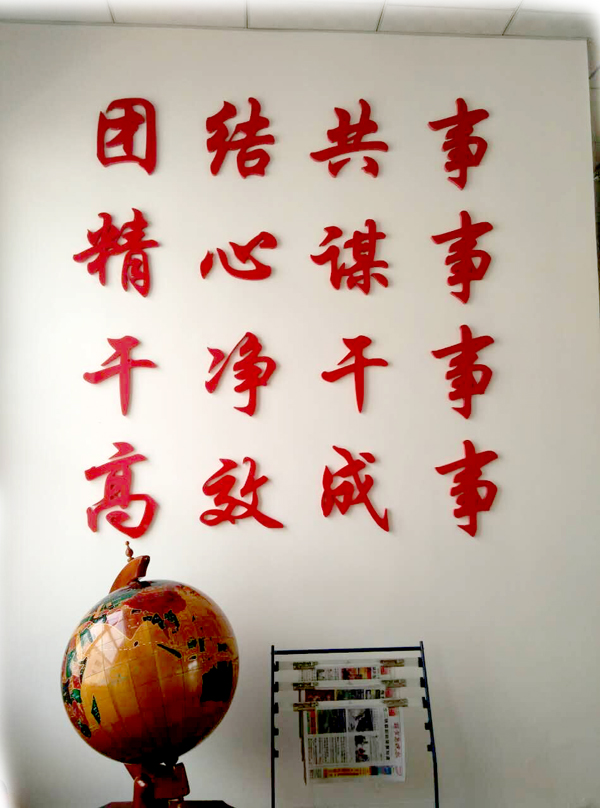 团结共事
精心谋事
干净干事
高效成事